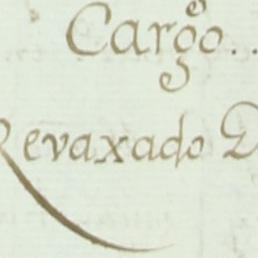 Cargo..
Revaxado D